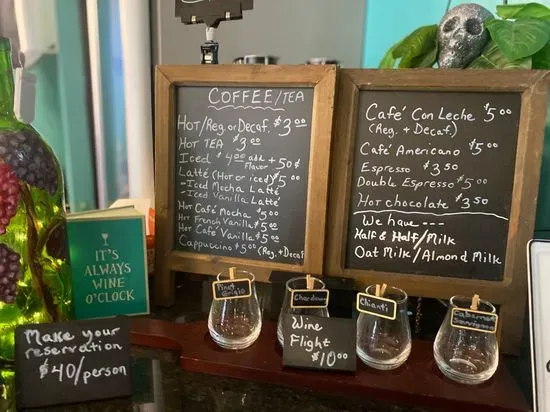 COFFEE/TEA
Hot/Reg. or Decaf. $3.00
Hot TEA $3.00
Iced $4.00 add Flavor + 50¢
Latté (Hot or iced) $5.00
- Iced Mocha Latté
- Iced Vanilla Latté
Hot Café Mocha $5.00
Hot French Vanilla $5.00
Hot Café Vanilla $5.00
Cappuccino $5.00 (Reg. + Decaf
Café Con Leche $5.00
(Reg. + Decaf.)
Café Americano $5.00
Espresso $3.50
Double Espresso $5.00
Hot chocolate $3.50
We have ---
Half & Half/Milk
Oat Milk/Almond Milk
IT'S
ALWAYS
WINE
O'CLOCK
Pinot
Grigio
Chardonnay
Chianti
Cabernet
Sauvignon
Make your
reservation
$40/person
Wine
Flight
$10.00